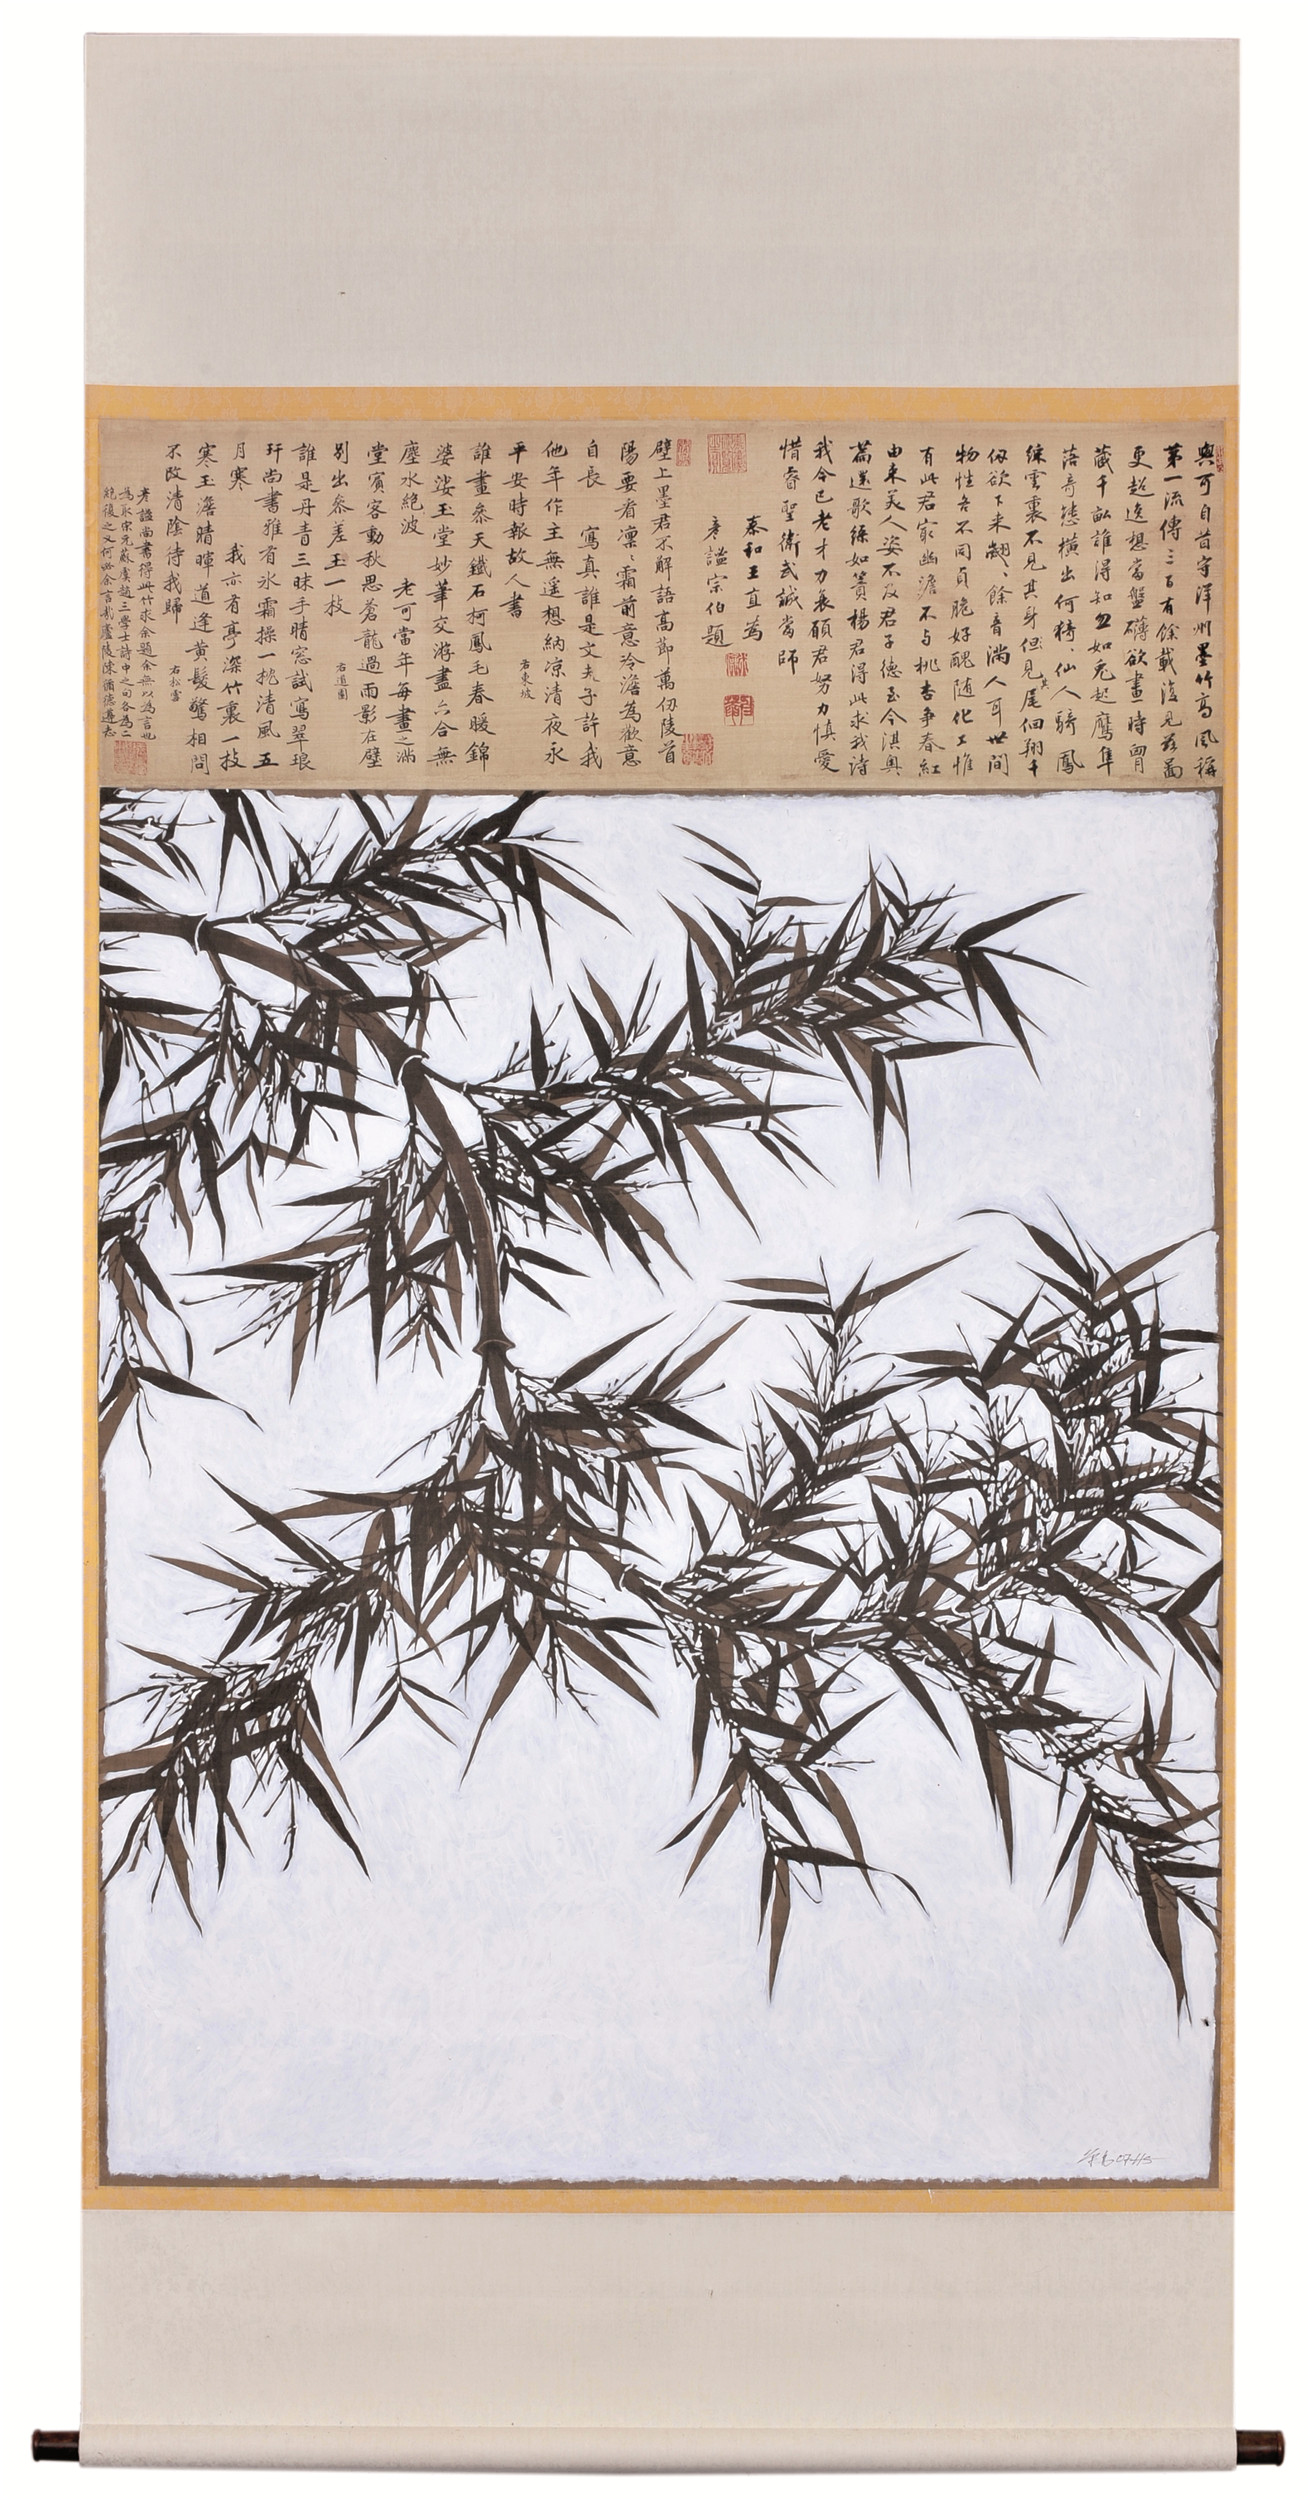 與可自昔守洋州墨竹高風稱
第一流傳三百有餘載復見茲畫
更超逸想當盤礴欲畫時胷
藏千畝誰得知忽如兔起鷹隼
落奇態橫出何猗猗仙人騎鳳
綵雲裏不見其身但見尾佪翔千
仭欲下来翽翽餘音滿人耳世間
物性吝不同貞脆好醜随化工惟
有此君家幽澹不与桃杏争春紅
由来美人姿不及君子德至今淇奥
篇遺歌綠如簀楊君得此求我詩
我今已老才力衰願君努力慎愛
惜睿聖衛武誠當師
泰和王直為
彥謐宗伯題
壁上墨君不解語高節萬仞陵首
陽要看凛凛霜前意冷澹為歡意
自長 寫真誰是文夫子許我
他年作主無遥想納凉清夜永
平安時報故人書 右東坡
誰畫叅天鐵石柯鳳毛春暖錦
婆娑玉堂妙筆交游盡六合無
塵水絶波 老可當年每畫之滿
堂賓客動秋思蒼龍過雨影在壁
别出叅差玉一枝 右道園
誰是丹青三昧手晴窓試寫翠琅
玕尚書雅有氷霜操一挹清風五
月寒 我亦有亭深竹裏一枝
寒玉澹晴暉道逢黄髮驚相問
不改清陰待我歸 右松雪
彥謐尚書得此竹求余題余無以為言也
為取宋元蘇虞趙三學士詩中之句各為二
絶復之又何必余言哉廬陵陳循德遵志